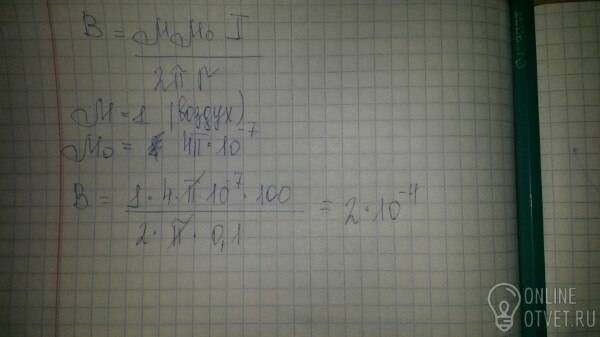 B = μμ₀ I / 2π r
μ = 1 (воздух)
μ₀ = 4π·10⁻⁷
B = 1·4·π·10⁷·100 / 2·π·0,1 = 2·10⁻⁴
ONLINE
OTVET.RU